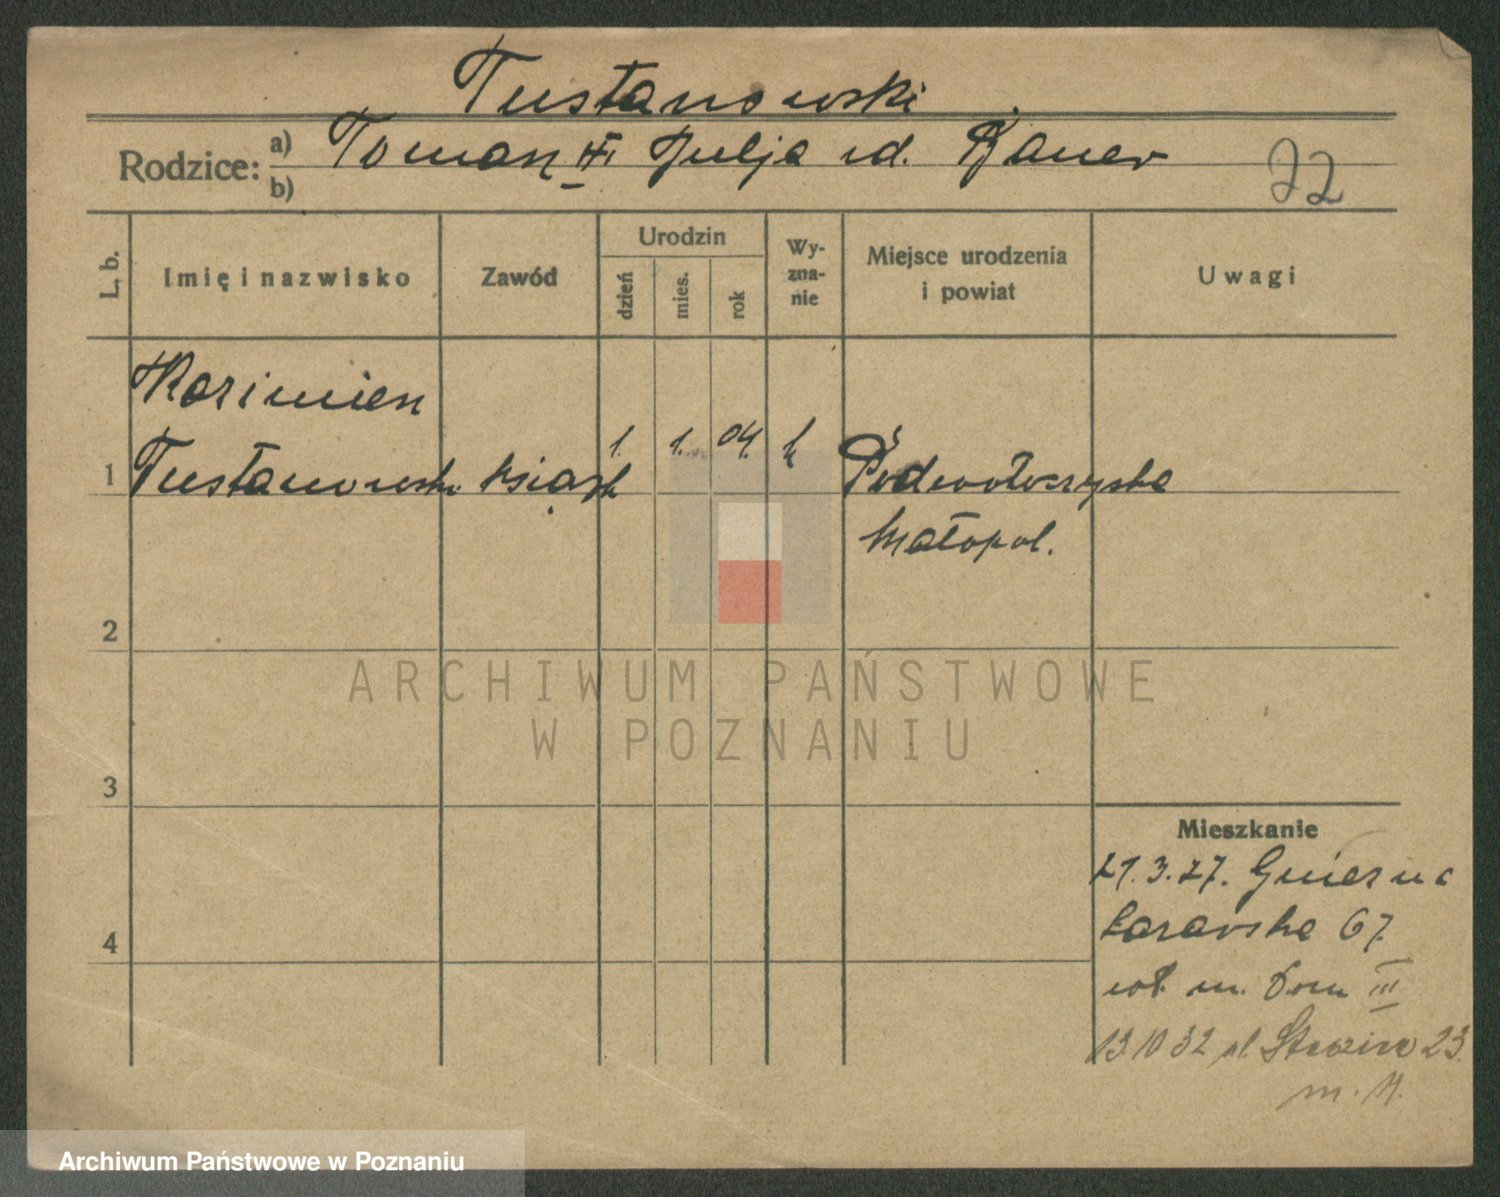 Tustanowski
Rodzice: a) Roman i Julja ud. Bauer
b)
22
L. b.
Imię i nazwisko
Zawód
Urodzin
dzień
mies.
rok
Wy-
zna-
nie
Miejsce urodzenia
i powiat
Uwagi
Kazimierz
1 Tustanowski
1. 1. 04.
Podwołoczyska
Małopol.
2
3
4
ARCHIWUM PAŃSTWOWE
W POZNANIU
Mieszkanie
21.3.27. Gniezno
67.
m. III
13 10 32 pl. 23
m.
Archiwum Państwowe w Poznaniu